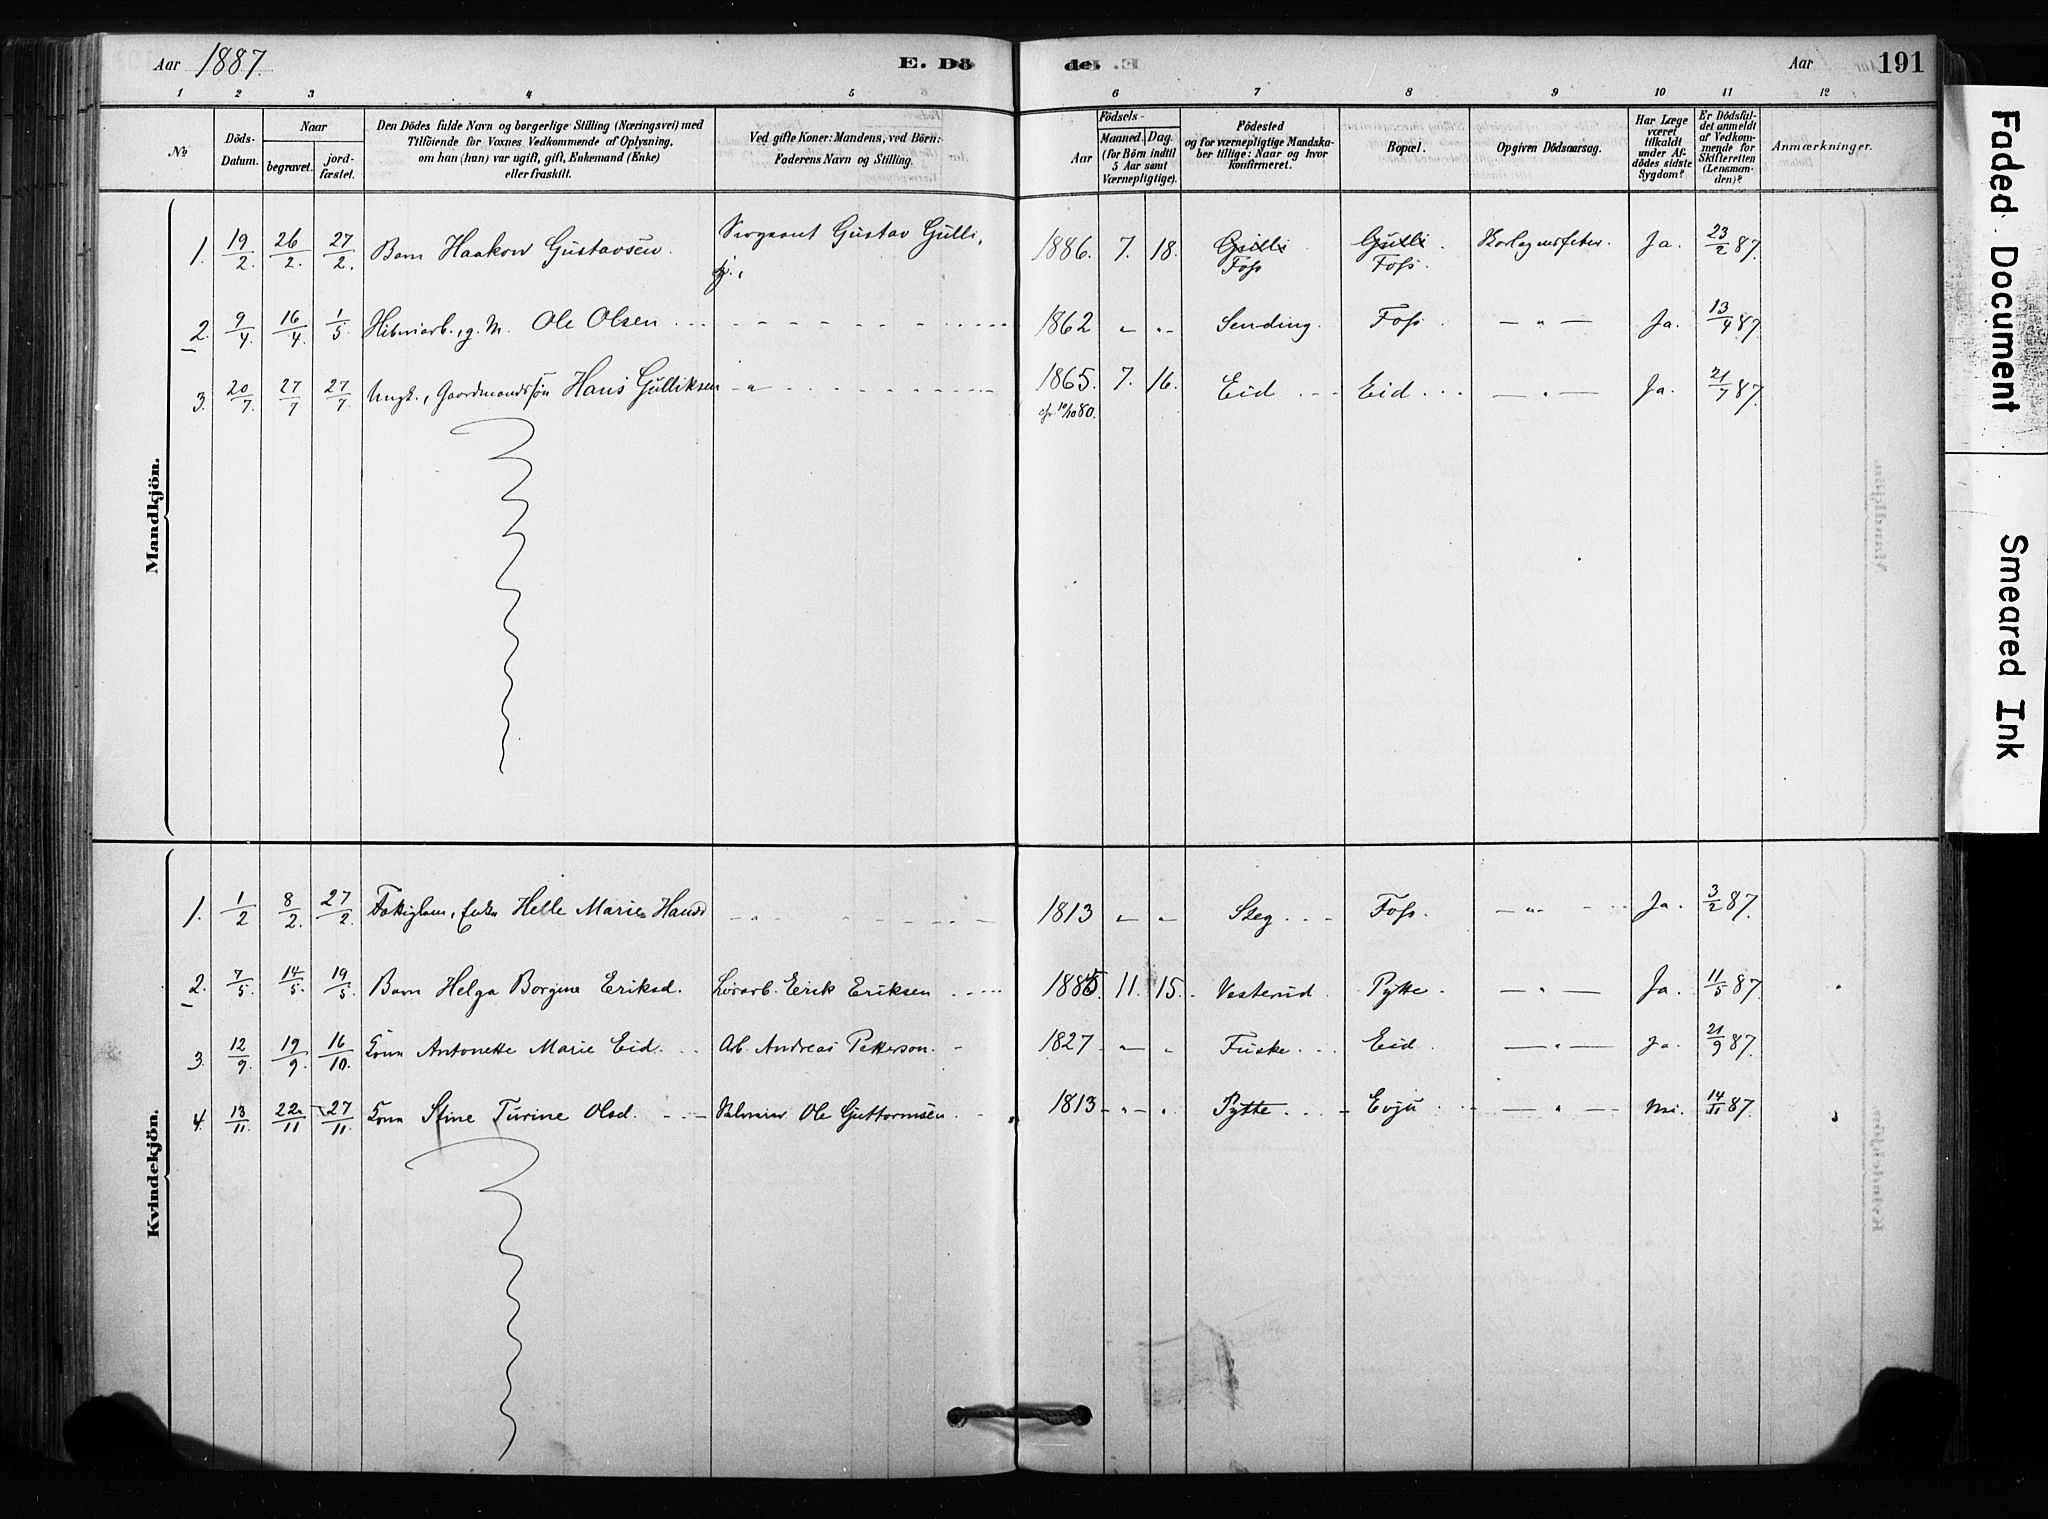 Aar 1887. E. Dö de. Aar 191
1 2 3 4 5 6 7 8 9 10 11 12
No Döds-Datum. Naar begravet. jord-fæstet. Den Dödes fulde Navn og borgerlige Stilling (Næringsvei) med Tilföiende for Voxnes Vedkommende af Oplysning, om han (hun) var ugift, gift, Enkemand (Enke) eller fraskilt. Ved gifte Koner: Mandens, ved Börn: Faderens Navn og Stilling. Födsels- Aar Maaned. Dag. (for Börn indtil 5 Aar samt Værnepligtige). Födested og for værnepligtige Mandskaber tillige: Naar og hvor Konfirmeret. Bopæl. Opgiven Dödsaarsag. Har Læge været tilkaldt under Afdödes sidste Sygdom? Er Dödsfaldet anmeldt af Vedkommende for Skifteretten (Lensmanden)? Anmærkninger.
Mandkjön.
1. 19/2. 26/2. 27/2. Barn Haakon Gustavsen. Sergeant Gustav Gulli, 1886. 7. 18. Gulli Foss Gulli Foss. Ja. 23/2 87.
2. 9/4. 16/4. 1/5. g. M. Ole Olsen 1862 " " Sending. Foss. — " — Ja. 13/4 87.
3. 20/7. 27/7 27/7. Ungk., Gaardmandssön Hans Gulliksen " 1865. 7. 16. Eid Eid — " — Ja. 21/7 87.
80.
Kvindekjön.
1. 1/2 8/2. 27/2. Enke Helle Marie Hansd " 1813 " " Steg Foss. — " — Ja. 3/2 87.
2. 7/5. 14/5. 19/5. Barn Helga Borgine Eriksd. Erik Eriksen 1885. 11. 15. Vesterud. Pytte. — " — Ja. 11/5 87.
3. 12/9. 19/9. 16/10. Kona Antonette Marie Eid. Arb. Andreas Petterson. 1827 " " Fuske Eid — " — Ja. 21/9 87.
4. 13/11. 22/11 27/11. Kona Stine Turine Olsd. Ole Guttormsen. 1813 " " Pytte Evju — " — Nei. 14/11 87.
Faded Document
Smeared Ink